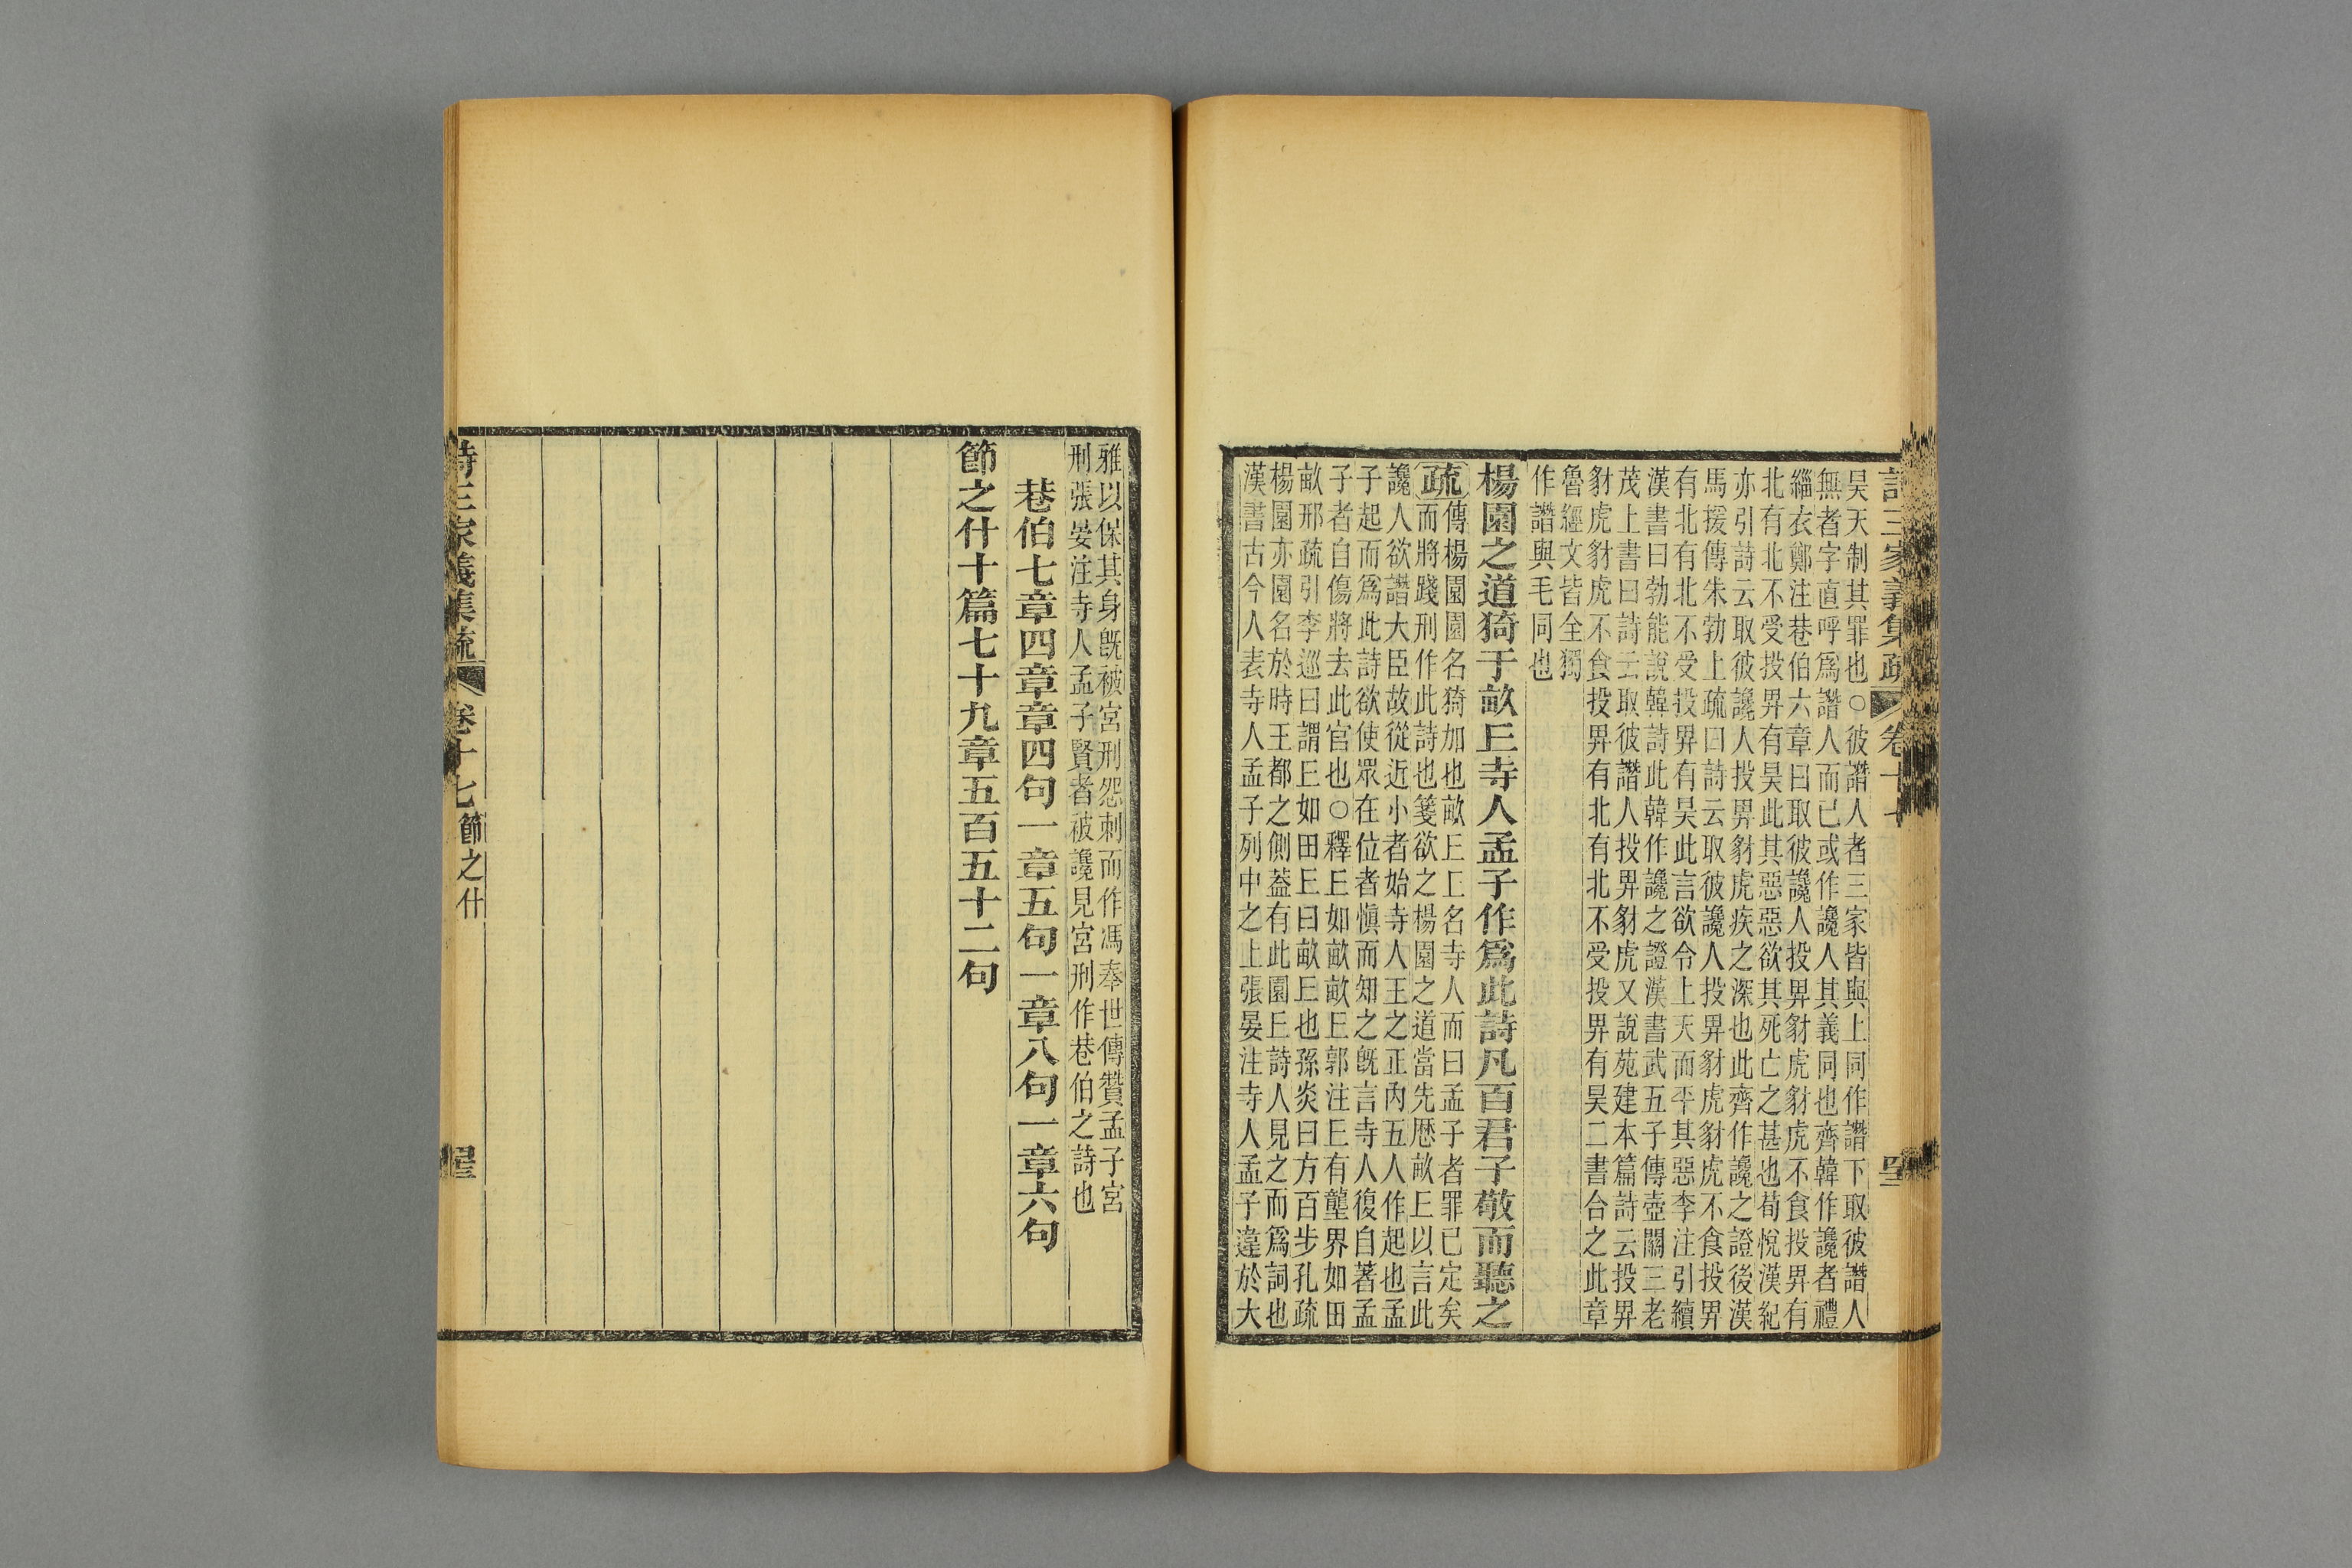 詩三家義集疏 卷十七
昊天制其罪也○彼譖人者三家皆與上同作譖下取彼譖人
無者字直呼爲譖人而已或作讒人其義同也齊韓作讒者禮
緇衣鄭注巷伯六章曰取彼讒人投畀豺虎豺虎不食投畀有
北有北不受投畀有昊此其惡惡欲其死亡之甚也荀悅漢紀
亦引詩云取彼讒人投畀豺虎疾之深也此齊作讒之證後漢
馬援傳朱勃上疏曰詩云取彼讒人投畀豺虎豺虎不食投畀
有北有北不受投畀有昊此言欲令上天而平其惡李注引續
漢書曰勃能說韓詩此韓作讒之證漢書武五子傳壺關三老
茂上書曰詩云取彼譖人投畀豺虎又說苑建本篇詩云投畀
豺虎豺虎不食投畀有北有北不受投畀有昊二書合之此章
魯經文皆全獨
作譖與毛同也
楊園之道猗于畝丘寺人孟子作爲此詩凡百君子敬而聽之
疏傳楊園園名猗加也畝丘丘名寺人而曰孟子者罪已定矣
而將踐刑作此詩也箋欲之楊園之道當先歷畝丘以言此
讒人欲譖大臣故從近小者始寺人王之正內五人作起也孟
子起而爲此詩欲使眾在位者愼而知之旣言寺人復自著孟
子者自傷將去此官也○釋丘如畝畝丘郭注丘有壟界如田
畝邢疏引李巡曰謂丘如田丘曰畝丘也孫炎曰方百步孔疏
楊園亦園名於時王都之側葢有此園丘詩人見之而爲詞也
漢書古今人表寺人孟子列中之上張晏注寺人孟子違於大
雅以保其身旣被宮刑怨刺而作馮奉世傳贊孟子宮
刑張晏注寺人孟子賢者被讒見宮刑作巷伯之詩也
巷伯七章四章章四句一章五句一章八句一章六句
節之什十篇七十九章五百五十二句
詩三家義集疏 卷十七 節之什